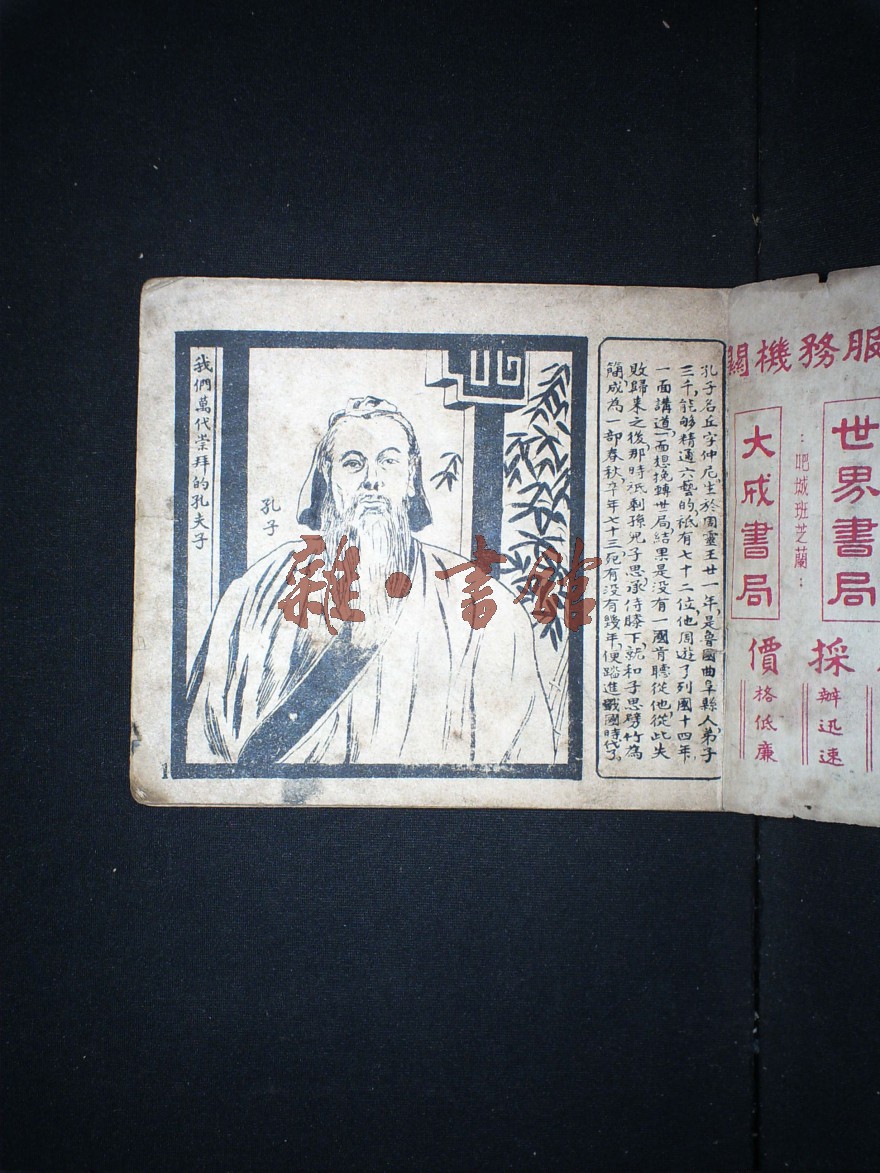 我們萬代崇拜的孔夫子
孔子
孔子名丘字仲尼，生於周靈王廿一年，是魯國曲阜縣人，弟子
三千，能够精通六藝的，祇有七十二位，他周遊了列國十四年，
一面講道，一面想挽轉世局，結果是没有一國肯聽從他，從此失
敗歸來之後，那時祇剩孫兒子思，承侍膝下，就和子思劈竹為
簡，成為一部春秋，卒年七十三，死有没有幾年，便踏進戰國時代了，
關機務服
世界書局
：吧城班芝蘭：
大成書局
採
辦迅速
價
格低廉
雜·書館
1